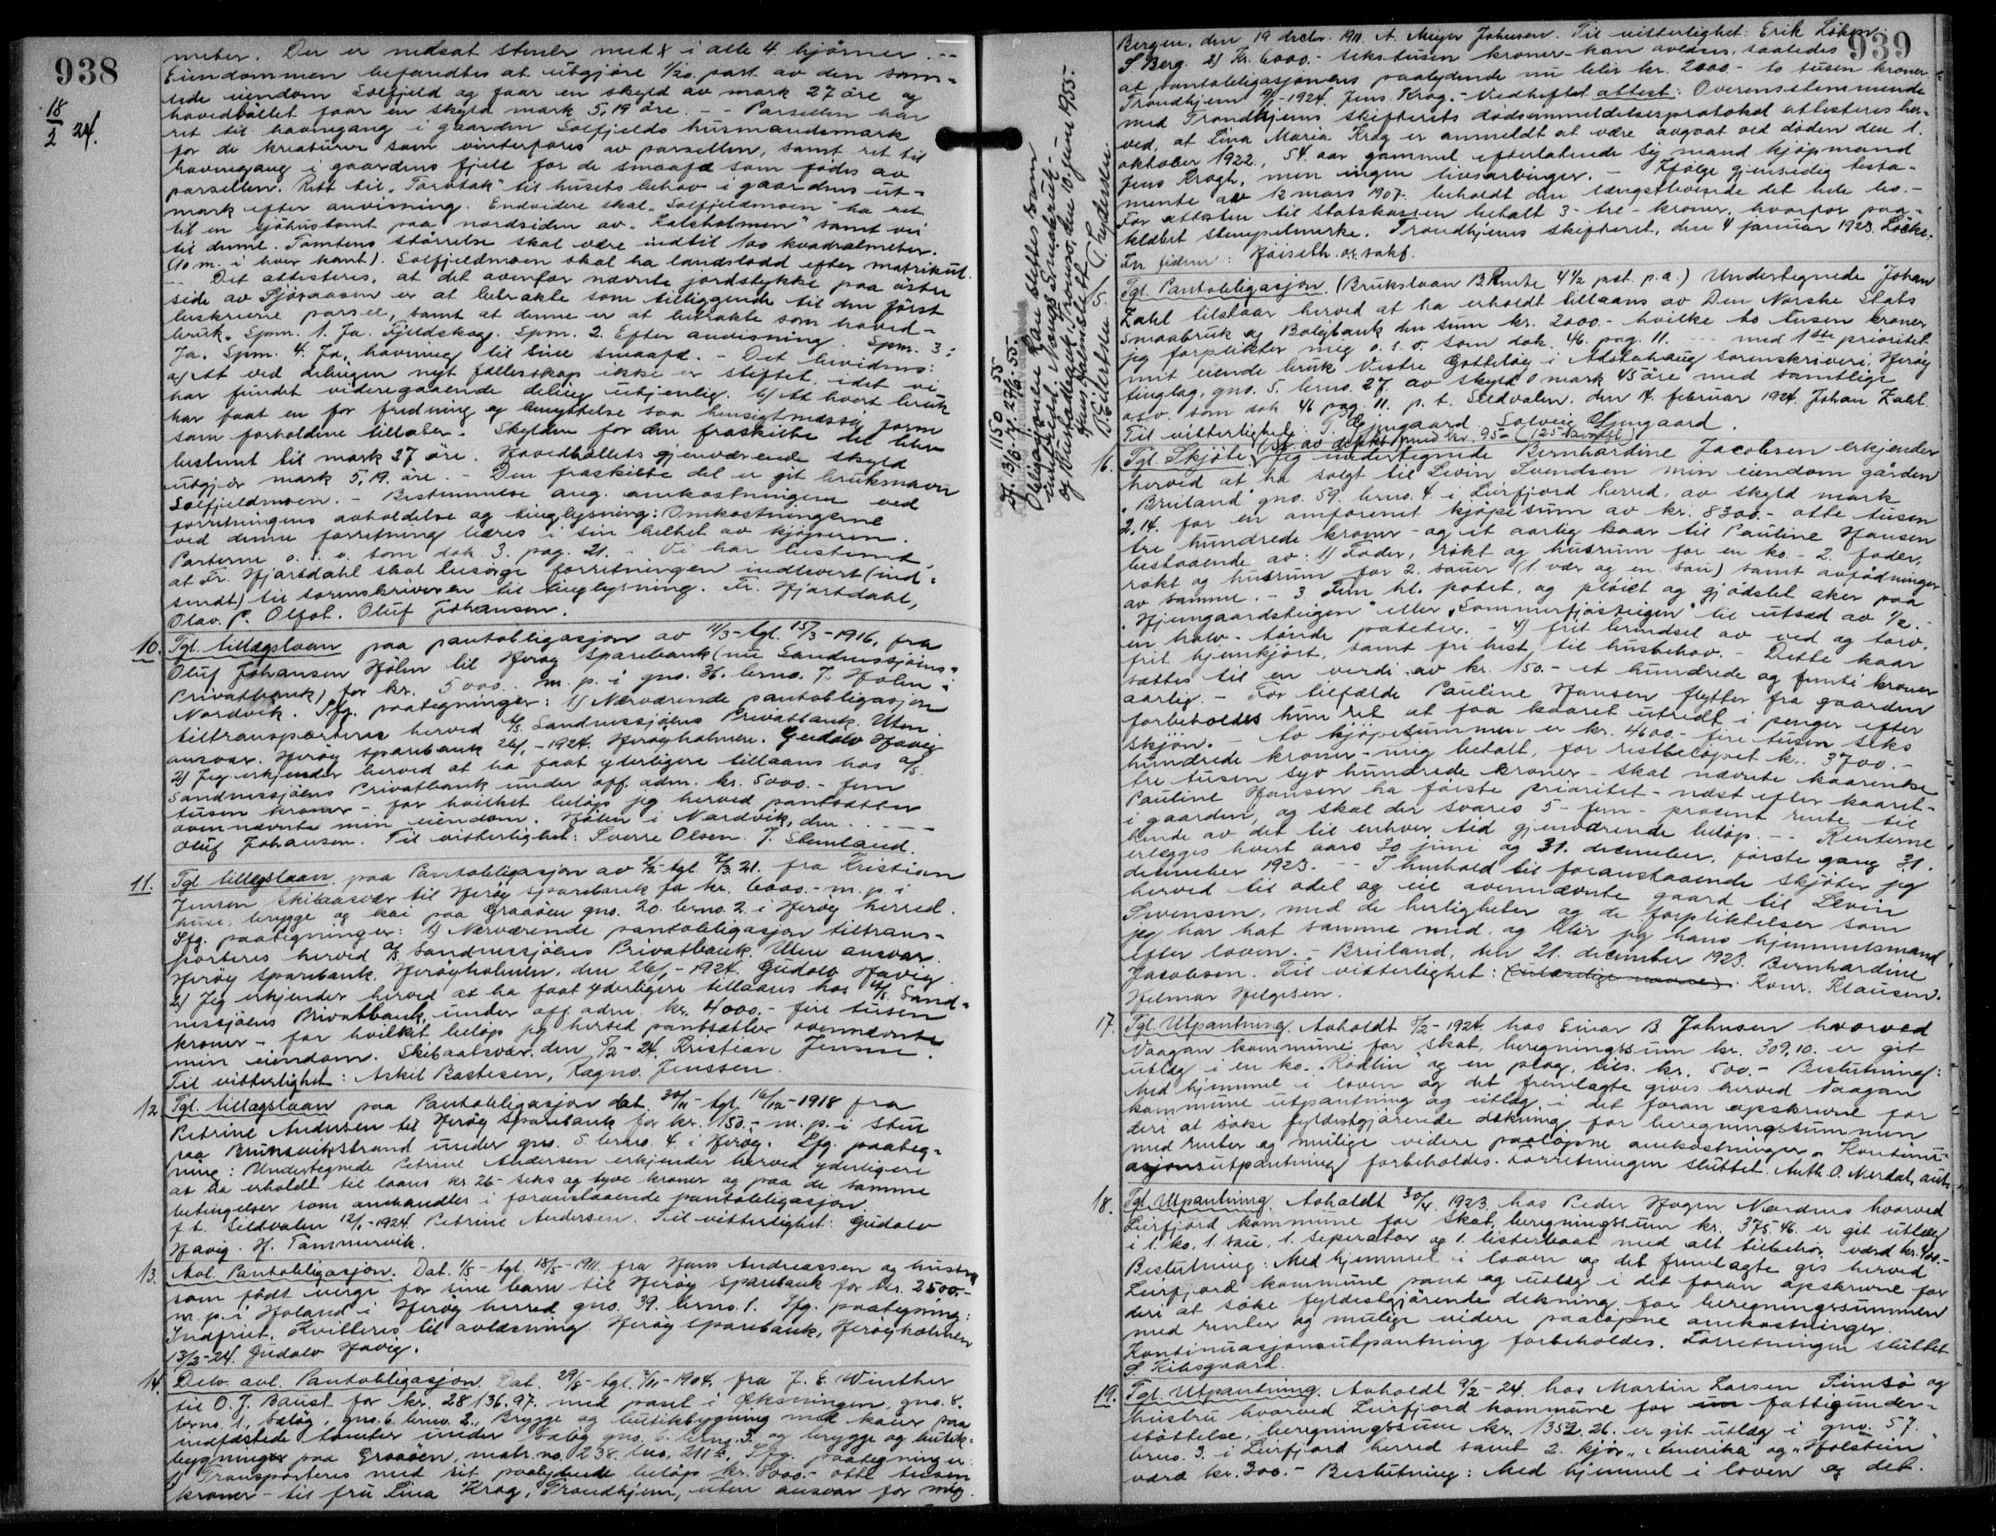 938
18/2 24.
meter. Der er nedsat stener med x i alle 4 hjørner. --
Eiendommen befandtes at utgjøre 1/20 part av den sam-
lede eiendom Solfjeld og faar en skyld av mark 27 øre og
hovedbøllet faar en skyld mark 5,19 øre. - - Parsellen har
ret til havnegang i gaarden Solfjelds husmandsmark
for de kreaturer som vinterfores av parsellen, samt ret til
havnegang i gaardens fjell for de smaafæ som fødes av
parsellen. Rett til "Torvtak" til husets behov i gaardens ut-
mark efter anvisning. Endvidere skal "Solfjeldmoen" ha ret
til en sjøhustomt paa nordsiden av "Kalsholmen" samt vei
til denne. Tomtens størrelse skal være indtil 100 kvadratmeter.
(10 m. i hver kant). Solfjeldmoen skal ha landslodd efter matrikul.
- Det attesteres, at det ovenfor nævnte jordstykke paa østre
side av Sjøraasen er at betrakte som tilliggende til den først
beskrevne parsel, samt at denne er at betrakte som hoved-
bruk. Spm. 1. Ja. Fjeldskog. Spm. 2. Efter anvisning. Spm. 3:
Ja. Spm. 4. Ja, havning til sine smaafæ. - Det bevidnes:
a) At ved delingen nyt fællesskap ikke er stiftet, idet vi
har fundet videregaaende deling utjenlig. b) At hvert bruk
har faat en for fredning og benyttelse saa hensigtmæssig form
som forholdene tillater. - Skylden for den fraskilte del blev
bestemt til mark 27 øre. Hovedbøllets gjenværende skyld
utgjør mark 5,19 øre. - Den fraskilte del er git bruksnavn
Solfjeldmoen. - Bestemmelse ang. omkostningene ved
forretningens avholdelse og tinglysning: Omkostningerne
ved denne forretning bæres i sin helhet av kjøperen.
Parterne o. s. v. som dok. 3. pag. 21. - Vi har bestemt
at Fr. Hjartdahl skal besørge forretningen indlevert (ind-
sendt) til sorenskriveren til tinglysning. Fr. Hjartdahl,
Olav. P. Olfot. Oluf Johansen.
10. Tgl. tillægslaan paa pantobligasjon av 11/3 - tgl. 15/3 - 1916, fra
Oluf Johansen Hølen til Herøy sparebank (nu Sandnessjøens
Privatbank) for kr. 5000.- m. p. i gno. 36. brno. 7. Hølen i
Nordvik. Sfg. paategninger: 1) Nærværende pantobligasjon
tiltransporteres herved A/S. Sandnessjøens Privatbank. Uten
ansvar. Herøy sparebank 26/1 - 1924. Herøyholmen. Gudolv Havig
2) Jeg erkjender herved at ha faat yderligere tillaans hos A/S.
Sandnessjøens Privatbank under off. adm. kr. 5000.- fem
tusen kroner - for hvilket beløp jeg herved pantsætter
ovennævnte min eiendom. Hølen i Nordvik, den . . . .
Oluf Johansen. Til vitterlighet: Sverre Olsen. J. Stemland.
11. Tgl. tillægslaan paa Pantobligasjon av 2/2 - tgl. 7/3. 21. fra Kristian
Jensen Skibaasvær til Herøy sparebank for kr. 6000.- m. p. i
huse, brygge og kai paa Graaøen gno. 20. brno. 2. i Herøy herred.
Sfg. paategninger: 1) Nærværende pantobligasjon tiltrans-
porteres herved A/S Sandnessjøens Privatbank. Uten ansvar.
Herøy sparebank, Herøyholmen, den 26/1 - 1924. Gudolv Havig.
2) Jeg erkjender herved at ha faat yderligere tillaans hos A/S Sand-
nessjøens Privatbank under off. adm. kr. 4000.- fire tusen
kroner - for hvilket beløp jeg herved pantsætter ovennævnte
min eiendom. Skibaasvær, den 5/2 - 24. Kristian Jensen.
Til vitterlighet: Askil Bastesen, Ragnv. Jenssen.
12. Tgl. tillægslaan paa Pantobligasjon dat. 30/11 - tgl. 16/12 - 1918 fra
Petrine Andersen til Herøy sparebank for kr. 150.- m. p. i stu
paa Brunsvikstrand under gno. 5. brno. 4. i Herøy. Sfg. paateg-
ning: Undertegnede Petrine Andersen erkjender herved yderligere
at ha erholdt til laans kr 26 - seks og tyve kroner og paa de samme
betingelser som omhandler i foranstaaende pantobligasjon.
p. t. Sildvalen 12/1 - 1924. Petrine Andersen. Til vitterlighet: Gudolv
Havig. H. Tømmervik.
13. Avl. Pantobligasjon. Dat. 1/5 - tgl. 18/5 - 1911. fra Hans Andreassen og hustru
som født verge for sine barn til Herøy sparebank for kr. 2500.-
m. p. i Holand i Herøy herred gno. 39. brno. 1. Sfg. paategning:
Indfriet. Kvitteres til avlæsning. Herøy sparebank, Herøyholmen
13/2 - 24. Gudolv Havig.
14. Delv. avl. Pantobligasjon. Dat. 29/8 - tgl. 2/11 - 1904. fra J. E. Winther
til O. J. Baust for kr. 28136,97. med pant i Øksningen, gno. 8.
brno. 1., Boløy, gno. 6. brno. 2., Brygge og butikbygning med kaier paa
indfæstede tomter under Boløy gno. 6. brno. 3. og brygge og butik-
bygninger paa Graaøen, matr. no. 238. lno. 211 b. Sfg. paategninger:
1) Transporteres med sit paalydende beløp kr. 8000.- otte tusen
kroner - til fru Lina Krog, Trondhjem, uten ansvar for mig.
Df. 3/1150 55
Obligasjonen kan slettes som
innfridd. Norges Småbruk-
og Bustadbank, Tromsø, den 10. juni 1955.
939
Bergen, den 19 decbr. 1911. A. Meyer Johnsen. Til vitterlighet: Erik Løken,
S Berg. 2) Kr. 6000.- sekstusen kroner - kan avlæses, saaledes
at pantobligasjonens paalydende nu blir kr. 2000.- to tusen kroner.
Trondhjem 9/1 - 1924. Jens Krog. - Vedheftet attest: Overensstemmende
med Trondhjems skifterets dødsanmeldelsesprotokol attesteres her-
ved, at Lina Maria Krog er anmeldt at være avgaat ved døden den 1.
oktober 1922, 54 aar gammel, efterlatende sig mand kjøpmand
Jens Krogh, men ingen livsarvinger. - Ifølge gjensidig testa-
mente av 12 mars 1907. beholdt den længstlevende det hele bo. -
For attesten til statskassen betalt 3 - tre - kroner, hvorfor paa-
klæbet stempelmerke. Trondhjems skifteret, den 4 januar 1923. Løcke.
15. Tgl. Pantobligasjon. (Brukslaan B. Rente 4 1/2 pct. p. a.) Undertegnede Johan
Zahl tilstaar herved at ha erholdt tillaans av Den Norske Stats
Smaabruk og Boligbank den sum kr. 2000.- hvilke to tusen kroner
jeg forplikter mig o. s. v. som dok. 46. pag. 11. . . . med 1ste prioritet
mit eiende bruk Vestre Gotteløy i Alstahaug sorenskriveri, Herøy
tinglag, gno. 5. brno. 27 av skyld 0 mark 45 øre med samtlige
osv. som dok 46 pag 11. p. t. Sildvalen, den 14. februar 1924. Johan Zahl.
Til vitterlighet: P. Ljungaard. Solveig Ljungaard.
16. Tgl. Skjøte. Jeg undertegnede Bernhardine Jacobsen erkjender
herved at ha solgt til Levin Svendsen min eiendom gården
"Breiland" gno. 59. brno. 4. i Leirfjord herred, av skyld mark
2,14. for en omforenet kjøpesum av kr. 8300.- otte tusen
tre hundrede kroner - og et aarlig kaar til Pauline Hansen
bestaaende av: 1) Foder, røkt og husrum for en ko. - 2. foder,
røkt og husrum for 2. sauer (1. vær og en sau) samt avfødninger
av samme. - 3. Fem hl. potet, og pløiet og gjødslet aker paa
"Hjemgaardsteigen" eller "Sommerfjøsteigen" til utsæd av 1/2. -
en halv - tønde poteter. - 4) frit brindsel av ved og torv,
frit hjemkjørt, samt fri hest til husbehov. - Dette kaar
sættes til en verdi av kr. 150.- et hundrede og femti kroner
aarlig. - For tilfælde Pauline Hansen flytter fra gaarden
forbeholdes hun ret at faa kaaret utredt i penger efter
skjøn. - Av kjøpesummen er kr. 4600.- fire tusen seks
hundrede kroner - mig betalt, for restbeløpet kr. 3700.-
tre tusen syv hundrede kroner - skal nævnte kaarenke
Pauline Hansen ha første prioritet - næst efter kaaret -
i gaarden, og skal der svares 5 - fem - procent rente til
hende av det til enhver tid gjenværende beløp. - - Renterne
erlægges hvert aars 30 juni og 31. december, første gang 31.
december 1923. - - I henhold til foranstaaende skjøter jeg
herved til odel og eie ovennævnte gaard til Levin
Svensen, med de herligheter og de forpliktelser som
jeg har hat samme med og blir jeg hans hjemmelsmand
efter loven. - Breiland, den 21. december 1923. Bernhardine
Jacobsen. Til vitterlighet: Konr. Klausen.
Hilmar Helgesen.
17. Tgl. Utpantning. Avholdt 5/2 - 1924. hos Einar B. Johnsen hvorved
Vaagan kommune for skat, beregningssum kr. 309,10. er git
utlæg i en ko "Rødlin" og en plog, tils. kr. 500.- Beslutning:
Med hjemmel i loven og det fremlagte gives herved Vaagan
kommune utpantning og utlæg i det foran opskrevne for
deri at søke fyldestgjørende dekning for beregningssummen
med renter og mulige videre paaløpne omkostninger. Kontinu-
asjonsutpantning forbeholdes. Forretningen sluttet. Anth. O. Nerdal, aut.
18. Tgl. Utpantning. Avholdt 30/4 1923. hos Peder Hagen Nærdnes hvorved
Leirfjord kommune for skat, beregningssum kr. 375.46. er git utlæg
i 1. ko, 1. sau, 1. seperator og 1. listerbaat med alt tilbehør, værd kr. 400.-
Beslutning: Med hjemmel i loven og det fremlagte gis herved
Leirfjord kommune pant og utlæg i det foran opskrevne for
deri at søke fyldestgjørende dekning for beregningssummen
med renter og mulige videre paaløpne omkostninger.
Kontinuasjonsutpantning forbeholdes. Forretningen sluttet
S Kibsgaard.
19. Tgl. Utpantning. Avholdt 9/2 - 24. hos Martin Larsen Simsø og
hustru hvorved Leirfjord kommune for fattigunder-
støttelse, beregningssum kr. 1352.26. er git utlæg i gno. 57.
brno. 3. i Leirfjord herred samt 2. kjør, "Amerika" og "Holstein"
værd kr. 300.- Beslutning: Med hjemmel i loven og det